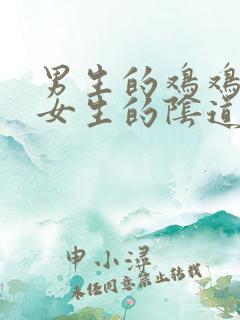 男生的鸡鸡
女生的陰道
申小浔
未经同意禁止转载